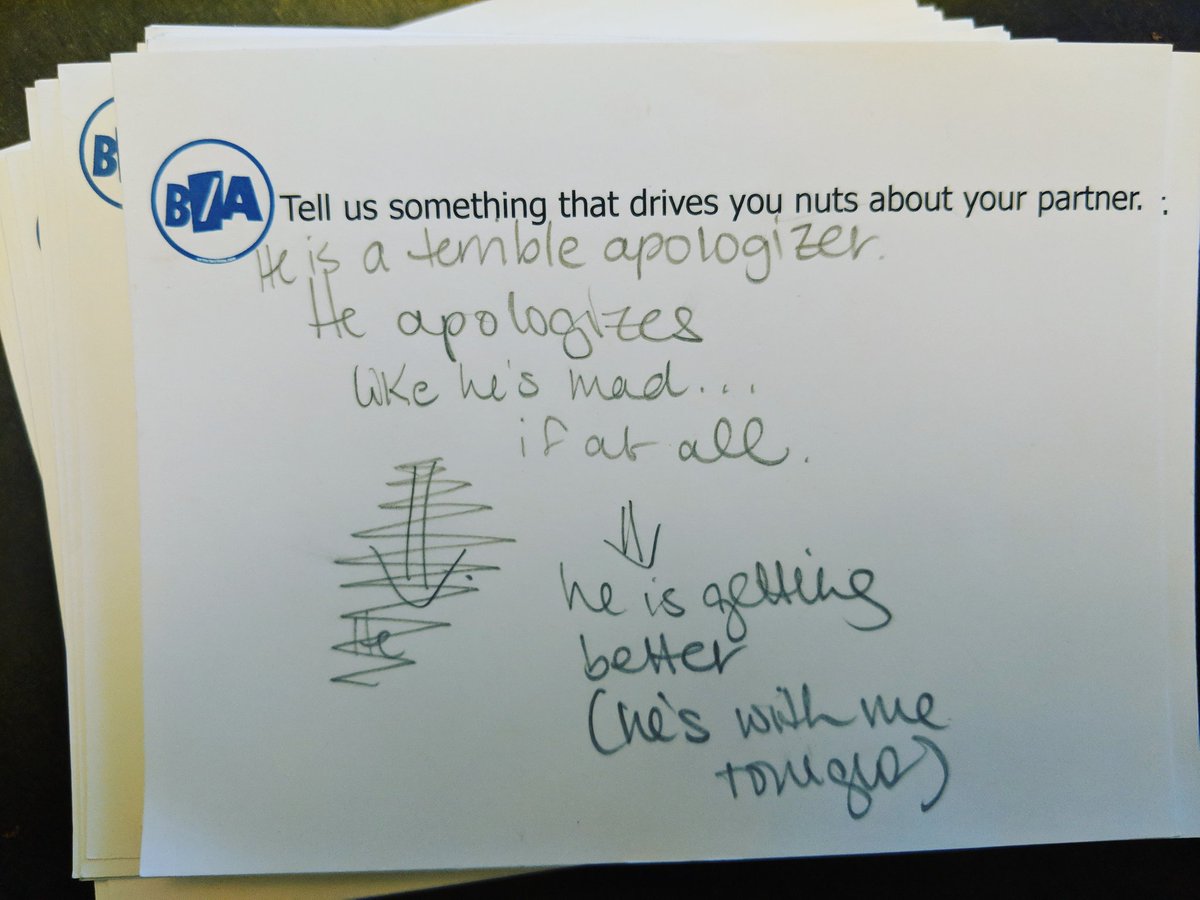 B/A Tell us something that drives you nuts about your partner. :
He is a terrible apologizer.
He apologizes
like he's mad...
if at all.
He
he is getting
better
(he's with me
tonight)
B